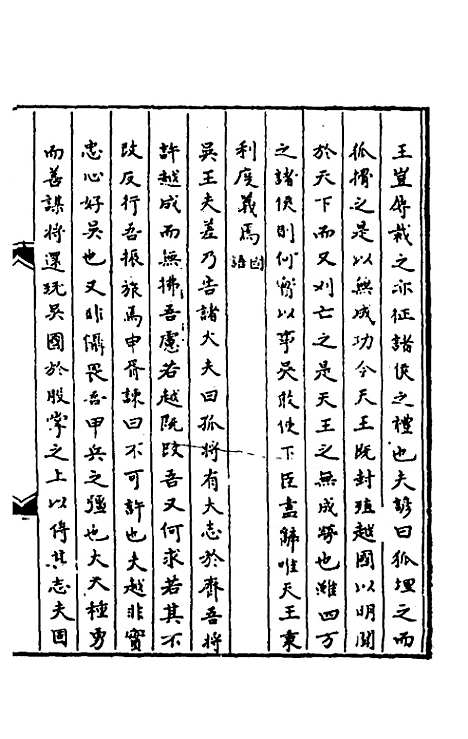 王豈辱裁之亦征諸侯之禮也夫諺曰狐埋之而
狐搰之是以無成功今天王既封殖越國以明聞
於天下而又刈亡之是天王之無成勞也雖四方
之諸侯則何實以事吳敢使下臣盡辭唯天王秉
利度義焉國語
吳王夫差乃告諸大夫曰孤將有大志於齊吾將
許越成而無拂吾慮若越既改吾又何求若其不
改反行吾振旅焉申胥諫曰不可許也夫越非實
忠心好吳也又非懾畏吾甲兵之彊也大夫種勇
而善謀將還玩吳國於股掌之上以得其志夫固